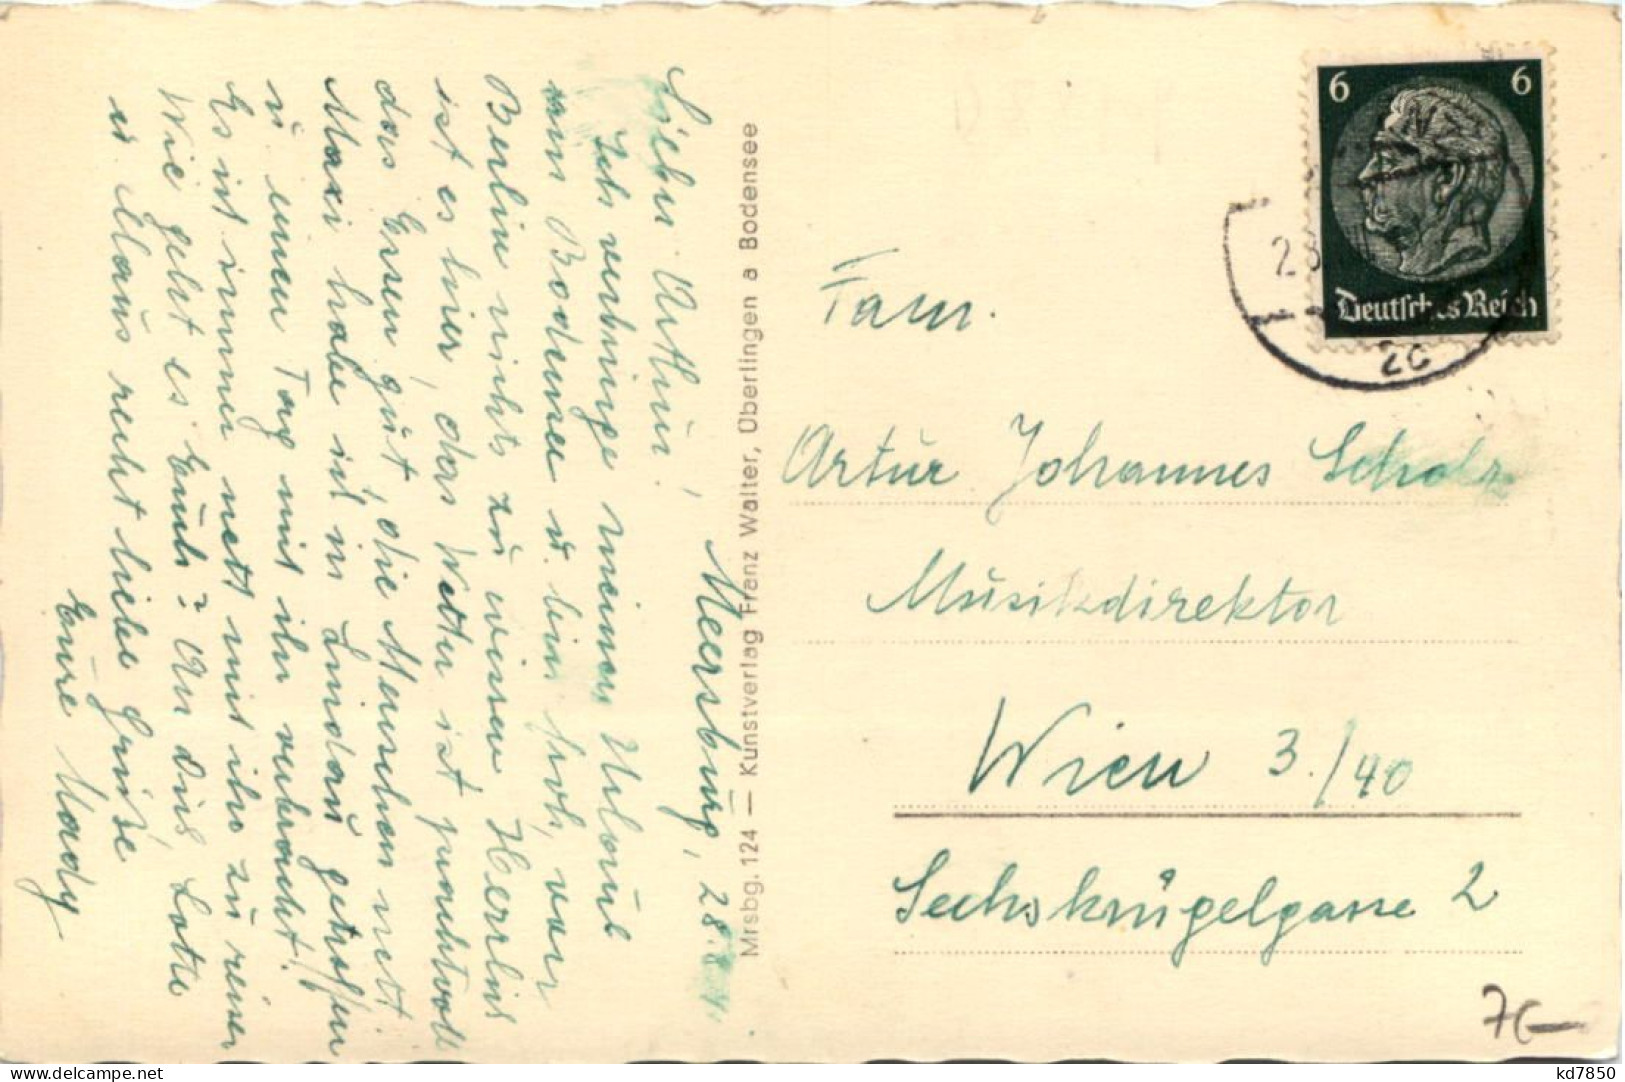 Meersburg, 28.8.41.
Lieber Arthur!
Ich verbringe meinen Urlaub
am Bodensee u. bin froh, von
Berlin nichts zu wissen. Herrlich
ist es hier, das Wetter ist prachtvoll
das Essen gut, die Menschen nett.
Maxi habe ich in Lindau getroffen
u. einen Tag mit ihr verbracht.
Es ist immer nett mit ihr zu reisen
Wie geht es Euch? An Dich, Lotte
u. Maus recht liebe Grüsse
Eure Mady
Mrsbg. 124 — Kunstverlag Franz Walter, Überlingen a Bodensee
6 6
Deutsches Reich
2c
Fam.
Artur Johannes Scholz
Musikdirektor
Wien 3./40
Sechskrügelgasse 2
7c—
kd7850